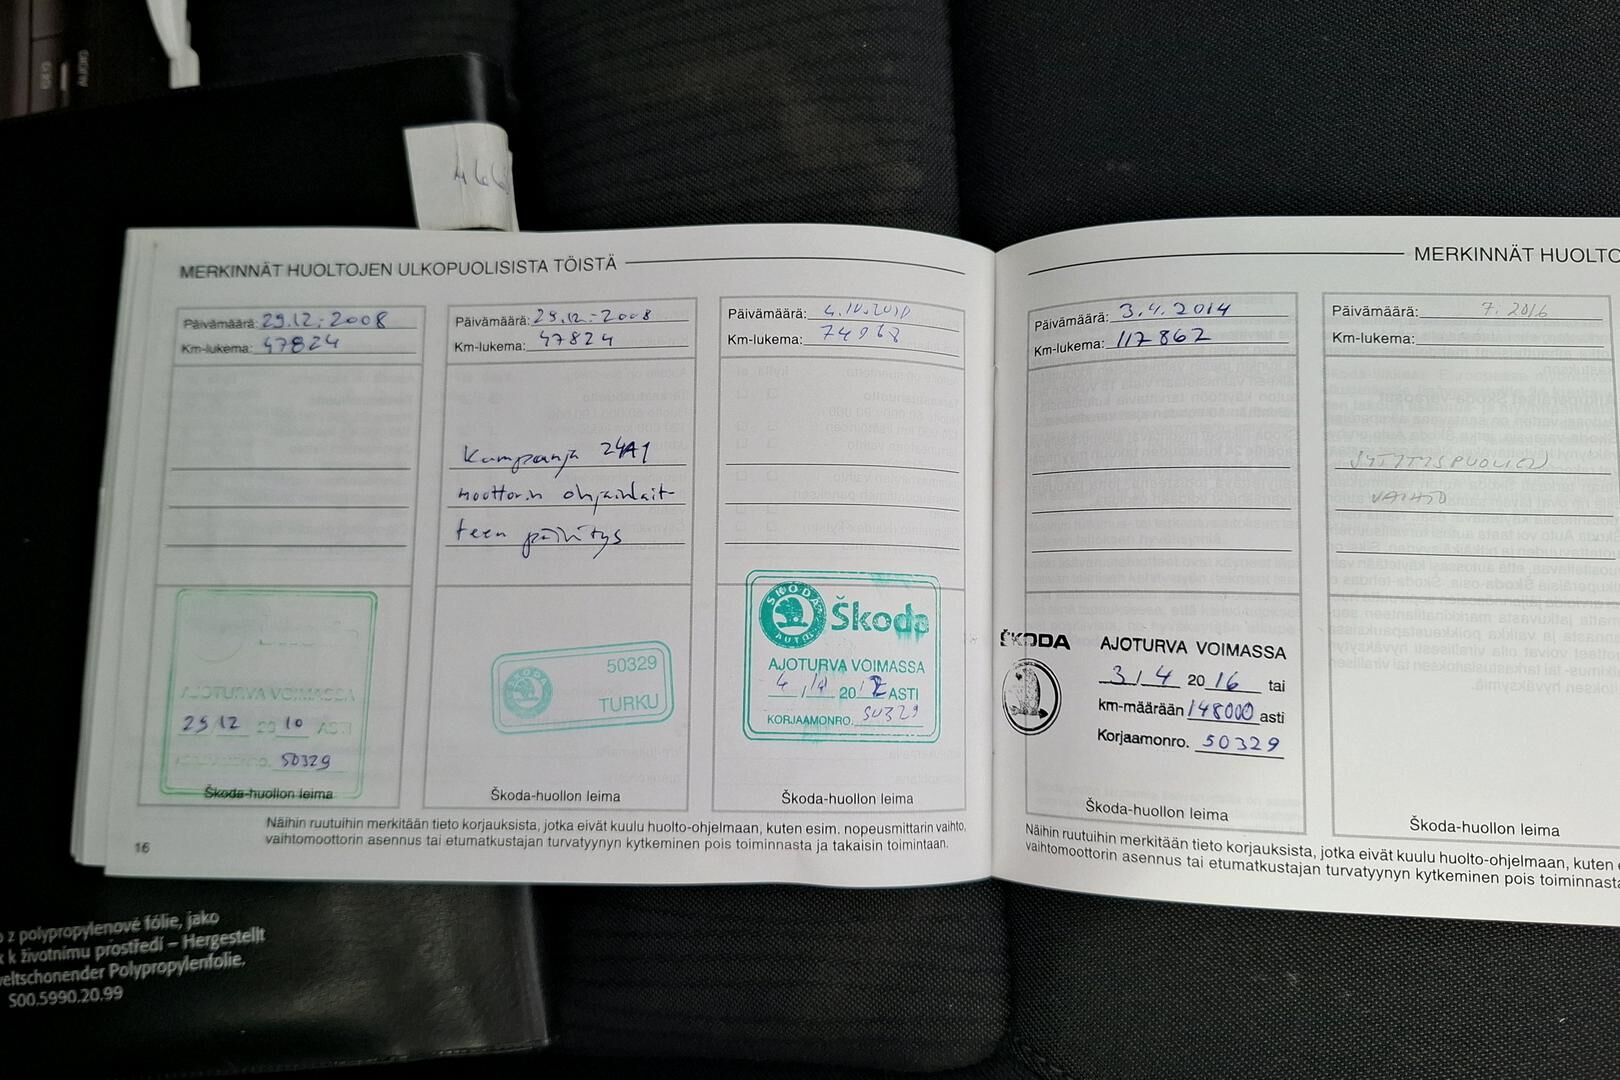 466
MERKINNÄT HUOLTOJEN ULKOPUOLISISTA TÖISTÄ
Päivämäärä: 29.12.-2008
Km-lukema: 47824
AJOTURVA VOIMASSA
29 12 20 10 ASTI
50329
Škoda-huollon leima
Päivämäärä: 29.12.-2008
Km-lukema: 47824
Kampanja 24A1
moottorin ohjainlait-
teen päivitys
50329
TURKU
Škoda-huollon leima
Päivämäärä: 4.10.2010
Km-lukema: 74968
SKODA
AUTO
Škoda
AJOTURVA VOIMASSA
20 12 ASTI
KORJAAMONRO. 50329
Škoda-huollon leima
Näihin ruutuihin merkitään tieto korjauksista, jotka eivät kuulu huolto-ohjelmaan, kuten esim. nopeusmittarin vaihto,
vaihtomoottorin asennus tai etumatkustajan turvatyynyn kytkeminen pois toiminnasta ja takaisin toimintaan.
16
MERKINNÄT HUOLTO
Päivämäärä: 3.4.2014
Km-lukema: 117862
ŠKODA
AJOTURVA VOIMASSA
3 / 4 20 16 tai
km-määrään 148000 asti
Korjaamonro. 50329
Škoda-huollon leima
Päivämäärä: 7.2016
Km-lukema:
SYTYTYSPUOLIEN
VAIHTO
Škoda-huollon leima
Näihin ruutuihin merkitään tieto korjauksista, jotka eivät kuulu huolto-ohjelmaan, kuten
vaihtomoottorin asennus tai etumatkustajan turvatyynyn kytkeminen pois toiminnasta
z polypropylenové fólie, jako
k životnímu prostředí – Hergestellt
weltschonender Polypropylenfolie.
S00.5990.20.99